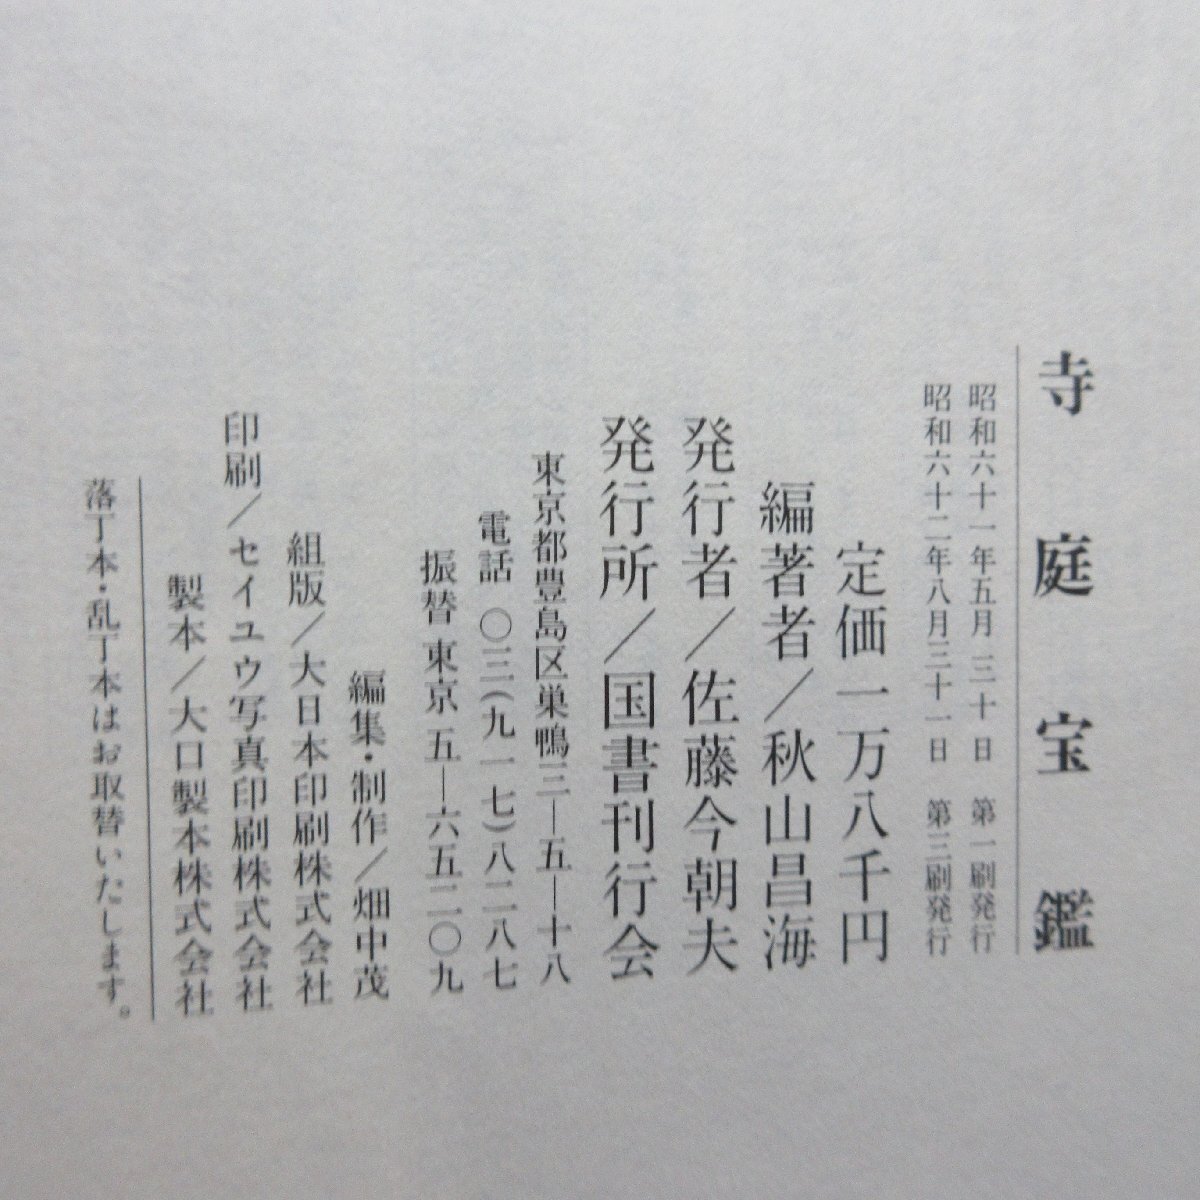 寺庭宝鑑
昭和六十一年五月三十日 第一刷発行
昭和六十二年八月三十一日 第三刷発行
定価一万八千円
編著者/秋山昌海
発行者/佐藤今朝夫
発行所/国書刊行会
東京都豊島区巣鴨三―五―十八
電話 〇三(九一七)八二八七
振替 東京五―六五二〇九
編集・制作/畑中茂
組版/大日本印刷株式会社
印刷/セイユウ写真印刷株式会社
製本/大口製本株式会社
落丁本・乱丁本はお取替いたします。